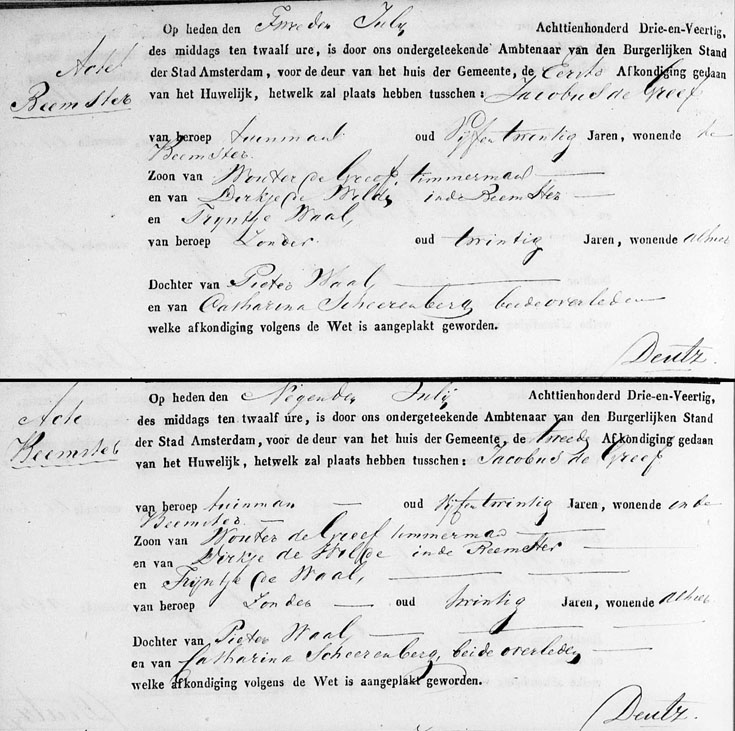 Op heden den Tweeden July Achttienhonderd Drie-en-Veertig,
des middags ten twaalf ure, is door ons ondergeteekende Ambtenaar van den Burgerlijken Stand
Acte der Stad Amsterdam, voor de deur van het huis der Gemeente, de Eerste Afkondiging gedaan
Beemster van het Huwelijk, hetwelk zal plaats hebben tusschen: Jacobus de Greef
van beroep tuinman oud Vijf en twintig Jaren, wonende
Beemster
Zoon van Wouter de Greef, timmerman
en van Dirkje de Wolde in de Beemster
en Tryntje Waal,
van beroep Zonder oud twintig Jaren, wonende alhier
Dochter van Pieter Waal,
en van Catharina Scheerenberg, beide overleden
welke afkondiging volgens de Wet is aangeplakt geworden.
Deutz
Op heden den Negenden July Achttienhonderd Drie-en-Veertig,
Acte des middags ten twaalf ure, is door ons ondergeteekende Ambtenaar van den Burgerlijken Stand
Beemster der Stad Amsterdam, voor de deur van het huis der Gemeente, de tweede Afkondiging gedaan
van het Huwelijk, hetwelk zal plaats hebben tusschen: Jacobus de Greef
van beroep tuinman oud Vijf en twintig Jaren, wonende in de
Beemster
Zoon van Wouter de Greef timmerman
en van Dirkje de Wolde in de Beemster
en Tryntje de Waal,
van beroep Zonder oud twintig Jaren, wonende alhier
Dochter van Pieter Waal,
en van Catharina Scheerenberg, beide overleden
welke afkondiging volgens de Wet is aangeplakt geworden.
Deutz